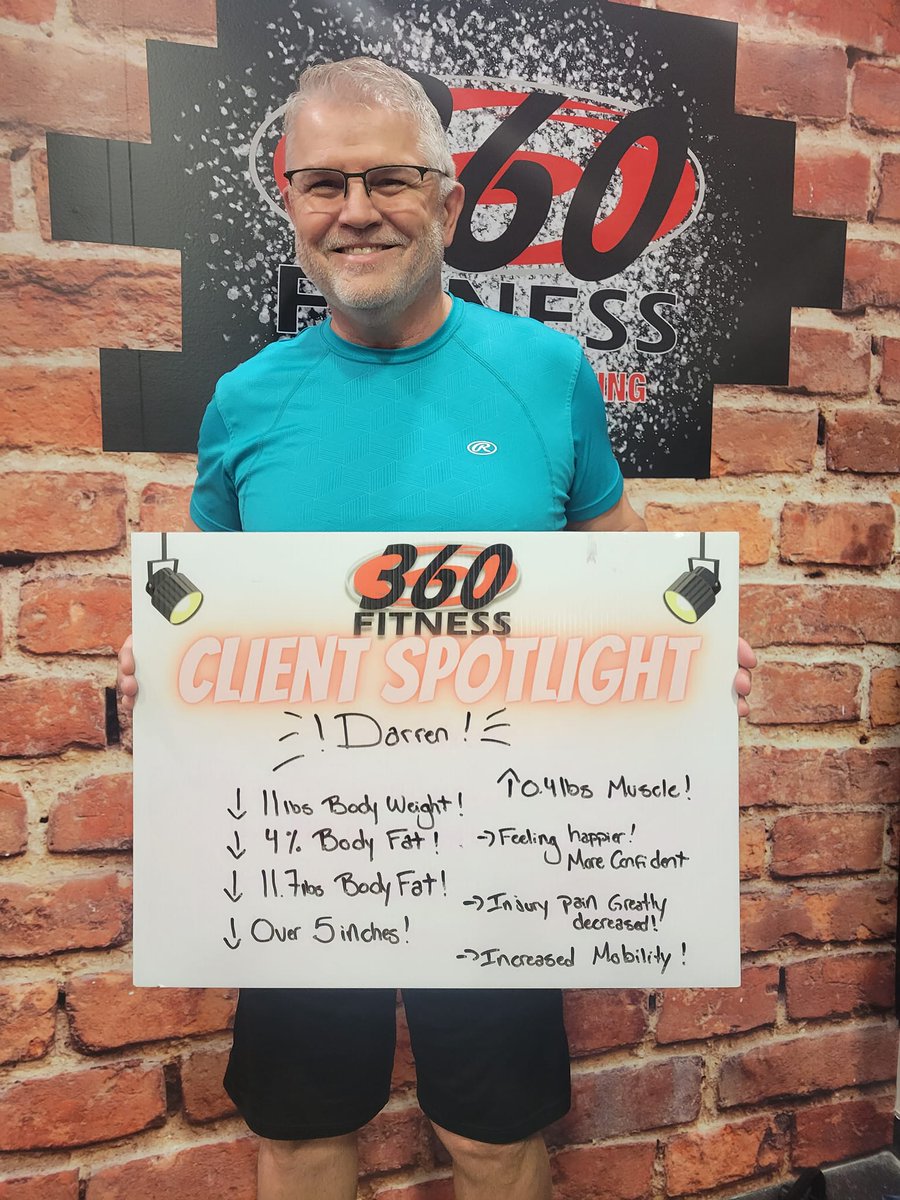 360
FITNESS
ING
R
360
FITNESS
CLIENT SPOTLIGHT
! Darren !
↓ 11lbs Body Weight!
↓ 4% Body Fat!
↓ 11.7lbs Body Fat!
↓ Over 5 inches!
↑0.4lbs Muscle!
→ Feeling happier!
More Confident
→ Injury pain Greatly
decreased!
→ Increased Mobility!